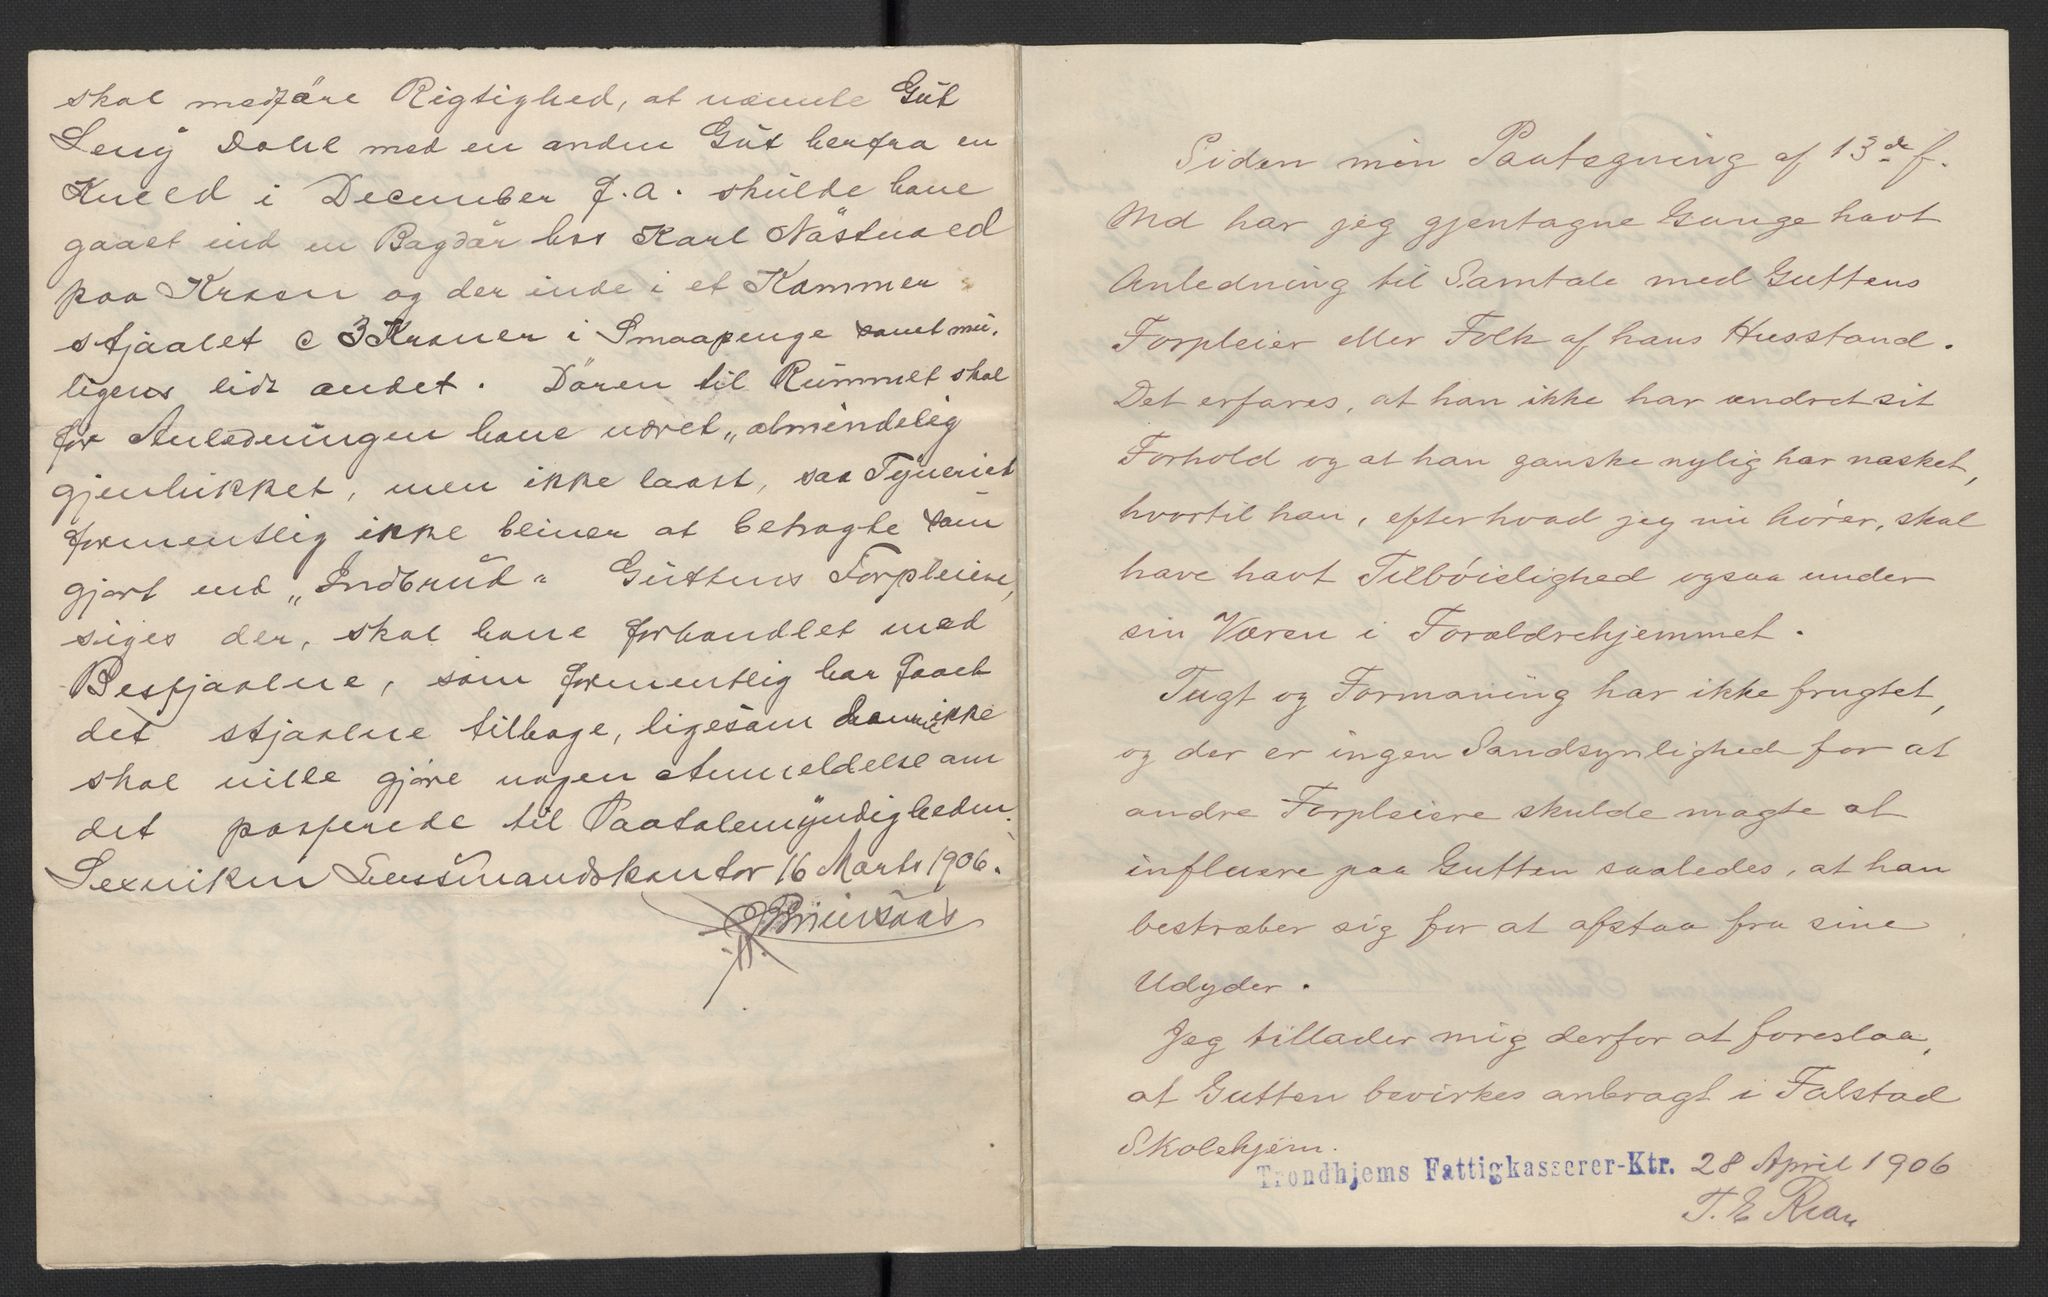 skal medføre Rigtighed, at nævnte Gut
Leny Dahl med en anden Gut herfra en
Kveld i December f.a. skulde have
gaaet ind en Bagdør hos Karl Nøstvold
paa Kraan og der inde i et Kammer
stjaalet c 3 Kroner i Smaapenge samt mu-
ligens lidt andet. Døren til Rummet skal
for Anledningen have været „almindelig
gjenlukket, men ikke laast, saa Tyveriet
formentlig ikke bliver at betragte som
gjort ved „Indbrud“ Guttens Forpleiere,
siges der, skal have forhandlet med
Bestjaalne, som formentlig har faaet
det stjaalne tilbage, ligesom denne ikke
skal ville gjøre nogen Anmeldelse om
det passerede til Paatalemyndigheden.
Lexviken Lensmandskontor 16 Marts 1906.
Siden min Paategning af 13de f.
Md har jeg gjentagne Gange havt
Anledning til Samtale med Guttens
Forpleier eller Folk af hans Husstand.
Det erfares, at han ikke har ændret sit
Forhold og at han ganske nylig har nasket,
hvortil han, efter hvad jeg nu hører, skal
have havt Tilbøielighed ogsaa under
sin Væren i Forældrehjemmet.
Tugt og Formaning har ikke frugtet,
og der er ingen Sandsynlighed for at
andre Forpleiere skulde magte at
influere paa Gutten saaledes, at han
bestræber sig for at afstaa fra sine
Udyder.
Jeg tillader mig derfor at foreslaa,
at Gutten bevirkes anbragt i Falstad
Skolehjem.
Trondhjems Fattigkasserer-Ktr. 28 April 1906
T. E. Rian